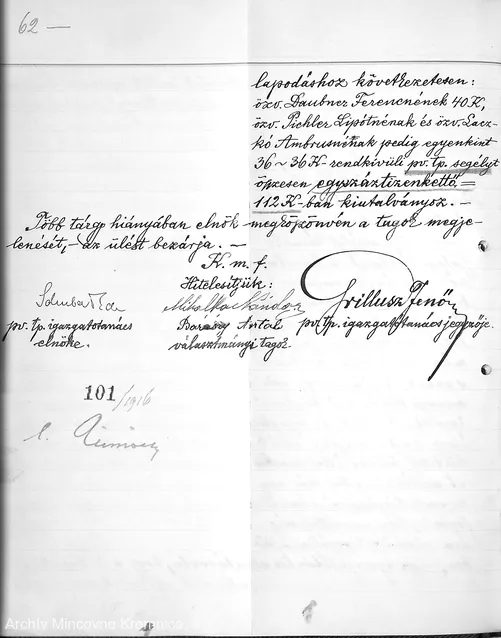 62 —
lapodáshoz következetesen:
özv. Daubner Ferencnének 40 K,
özv. Pichler Lipótnénak és özv. Lacz-
kó Ambrusnénak pedig egyenkint
36 ~ 36 K rendkivüli pv. tp. segélyt
összesen egyszáztizenkettő, =
112 K-ban kiutalványoz. —
Több tárgy hiányában elnök megköszönvén a tagok megje-
lenését, – az ülést bezárja. —
K. m. f.
Hitelesitjük:
pv. tp. igazgatótanács
elnöke.
Nándor
Antal
választmányi tagok.
Grillusz Jenő
pv. tp. igazgatótanács jegyzője.
101/1916
Archív Mincovne Kremnica